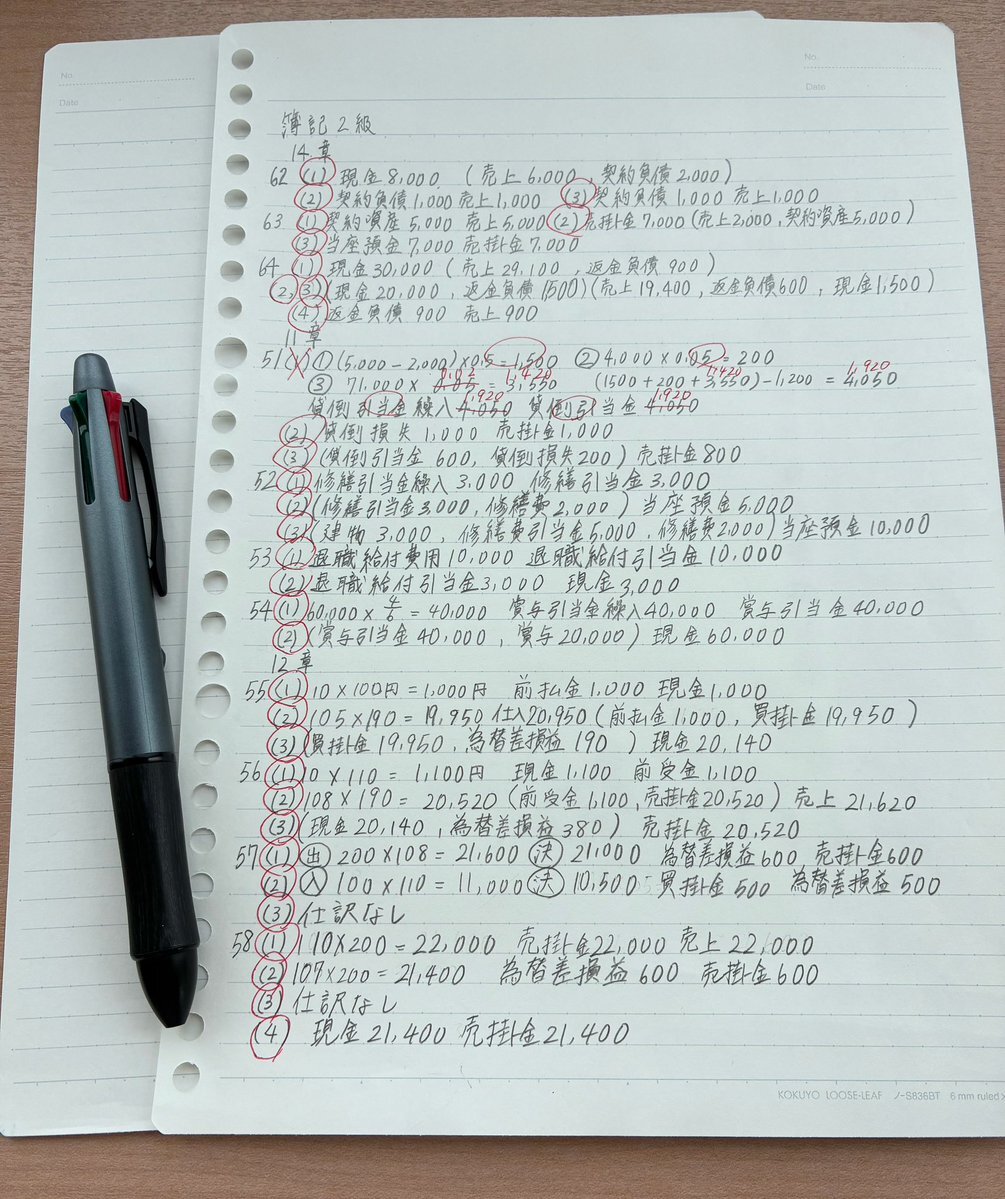 No.
Date
No.
Date
簿記2級
14章
62 (1) 現金8,000 (売上6,000, 契約負債2,000)
(2) 契約負債1,000 売上1,000 (3) 契約負債1,000 売上1,000
63 (1) 契約資産5,000 売上5,000 (2) 売掛金7,000 (売上2,000, 契約資産5,000)
(3) 当座預金7,000 売掛金7,000
64 (1) 現金30,000 (売上29,100, 返金負債900)
(2,3) (現金20,000, 返金負債1500) (売上19,400, 返金負債600, 現金1,500)
(4) 返金負債900 売上900
11章
51 (1) ① (5,000-2,000)×0.5=1,500 ② 4,000×0.05=200
0.02 1,420 1,420 1,920
③ 71,000×0.05=3,550 (1500+200+3,550)-1,200=4,050
1,920 1,920
貸倒引当金繰入4,050 貸倒引当金4,050
(2) 貸倒損失1,000 売掛金1,000
(3) (貸倒引当金600, 貸倒損失200) 売掛金800
52 (1) 修繕引当金繰入3,000 修繕引当金3,000
(2) (修繕引当金3,000, 修繕費2,000) 当座預金5,000
(3) 建物3,000, 修繕費引当金5,000, 修繕費2,000) 当座預金10,000
53 (1) 退職給付費用10,000 退職給付引当金10,000
(2) 退職給付引当金3,000 現金3,000
54 (1) 60,000×4/6=40,000 賞与引当金繰入40,000 賞与引当金40,000
(2) (賞与引当金40,000, 賞与20,000) 現金60,000
12章
55 (1) 10×100円=1,000円 前払金1,000 現金1,000
(2) 105×190=19,950 仕入20,950 (前払金1,000, 買掛金19,950)
(3) (買掛金19,950, 為替差損益190) 現金20,140
56 (1) 10×110=1,100円 現金1,100 前受金1,100
(2) 108×190=20,520 (前受金1,100, 売掛金20,520) 売上21,620
(3) (現金20,140, 為替差損益380) 売掛金20,520
57 (1) 出 200×108=21,600 決 21,000 為替差損益600 売掛金600
(2) 入 100×110=11,000 決 10,500 買掛金500 為替差損益500
(3) 仕訳なし
58 (1) 110×200=22,000 売掛金22,000 売上22,000
(2) 107×200=21,400 為替差損益600 売掛金600
(3) 仕訳なし
(4) 現金21,400 売掛金21,400
KOKUYO LOOSE-LEAF ノ-S836BT 6 mm ruled